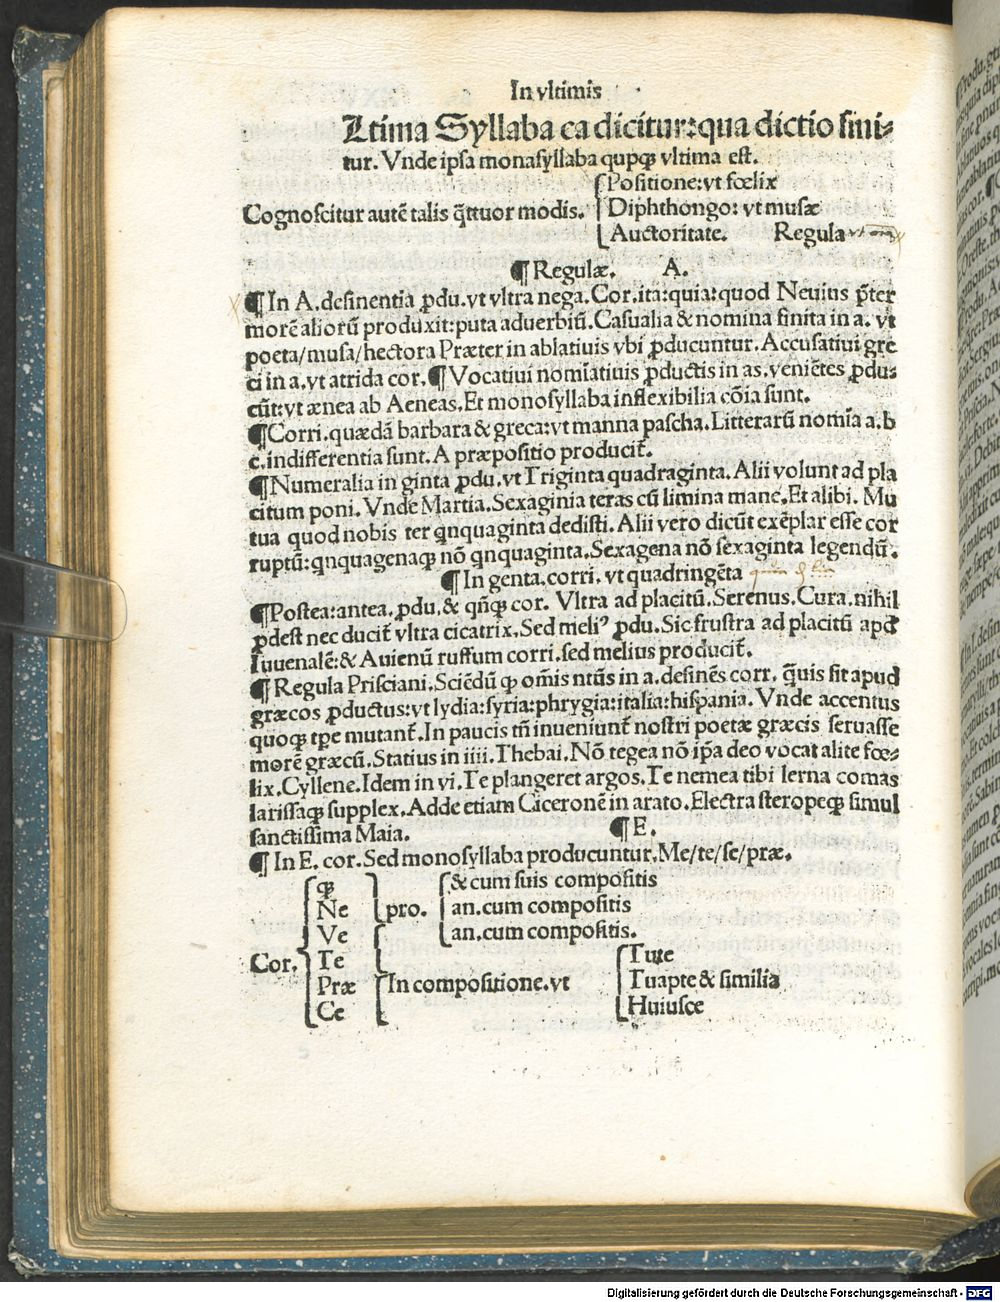 In vltimis
Ltima Syllaba ea dicitur:qua dictio fini⸗
tur. Vnde ipsa monasyllaba qupꝙ vltima est.
Positione:vt fœlix
Cognoscitur autē talis q̄ttuor modis. Diphthongo: vt musæ
Auctoritate. Regula
¶ Regulæ. A.
¶ In A.desinentia ꝓdu.vt vltra nega.Cor.ita:quia:quod Neuius p̄ter
morē aliorū produxit:puta aduerbiū.Casualia & nomina finita in a. vt
poeta/musa/hectora Præter in ablatiuis vbi ꝓducuntur.Accusatiui gre
ci in a.vt atrida cor.¶ Vocatiui nomīatiuis ꝓductis in as.veniētes ꝓdu⸗
cūt:vt ænea ab Aeneas.Et monosyllaba inflexibilia cōia sunt.
¶ Corri.quædā barbara & greca:vt manna pascha.Litterarū nomīa a.b
c.indifferentia sunt. A præpositio producit̄.
¶ Numeralia in ginta ꝓdu.vt Triginta quadraginta.Alii volunt ad pla
citum poni. Vnde Martia.Sexaginia teras cū limina mane.Et alibi. Mu
tua quod nobis ter qnquaginta dedisti. Alii vero dicūt exēplar esse cor
ruptū:qnquagenaꝙ nō qnquaginta.Sexagena nō sexaginta legendū.
¶ In genta.corri. vt quadringēta
¶ Postea:antea.ꝓdu.& qn̄ꝙ cor. Vltra ad placitū.Serenus.Cura.nihil
ꝓdest nec ducit̄ vltra cicatrix.Sed meliꝰ ꝓdu.Sic frustra ad placitū apd
Iuuenalē:& Auienū ruffum corri.sed melius producit̄.
¶ Regula Prisciani.Sciēdū ꝙ om̄is nt̄us in a.desinēs corr. q̄uis sit apud
græcos ꝓductus:vt lydia:syria:phrygia:italia:hispania. Vnde accentus
quoꝙ tp̄e mutant̄.In paucis tn̄ inueniunt̄ nostri poetæ græcis seruasse
morē græcū.Statius in iiii.Thebai.Nō tegea nō ip̄a deo vocat alite fœ⸗
lix.Cyllene.Idem in vi.Te plangeret argos.Te nemea tibi lerna comas
larissaꝙ supplex.Adde etiam Ciceronē in arato.Electra steropeꝙ simul
sanctissima Maia. ¶ E.
¶ In E. cor.Sed monosyllaba producuntur.Me/te/se/præ.
ꝙ & cum suis compositis
Ne pro. an.cum compositis
Ve an.cum compositis.
Cor. Te Tute
Præ In compositione.vt Tuapte & similia
Ce Huiusce
Digitalisierung gefördert durch die Deutsche Forschungsgemeinschaft - DFG